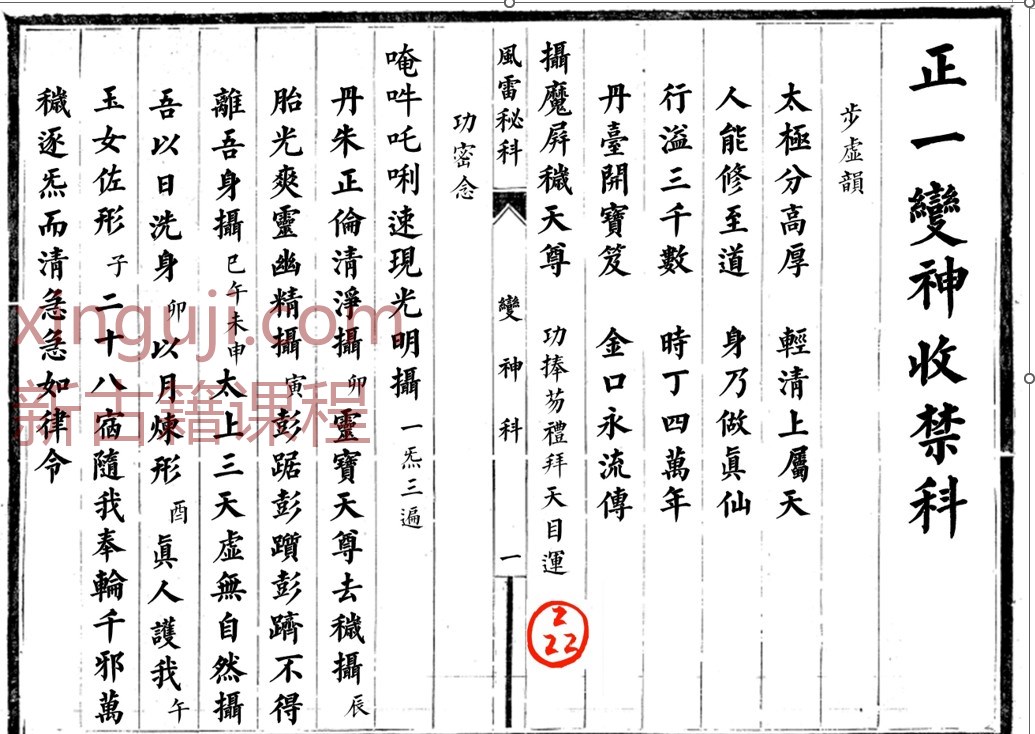 正一變神收禁科
步虛韻
太極分高厚 輕清上屬天
人能修至道 身乃做眞仙
行溢三千數 時丁四萬年
丹臺開寶笈 金口永流傳
攝魔屏穢天尊 功捧芴禮拜天目運
風雷秘科 變神科 一
功密念
唵吽吒唎速現光明攝 一炁三遍
丹朱正倫清淨攝 卯 靈寶天尊去穢攝 辰
胎光爽靈幽精攝 寅 彭踞彭躓彭蹻不得
離吾身攝 巳午未申 太上三天虛無自然攝
吾以日洗身 卯 以月煉形 酉 眞人護我 午
玉女佐形 子 二十八宿隨我奉輪千邪萬
穢逐炁而清急急如律令
2
22
xinguji.com
新古籍课程